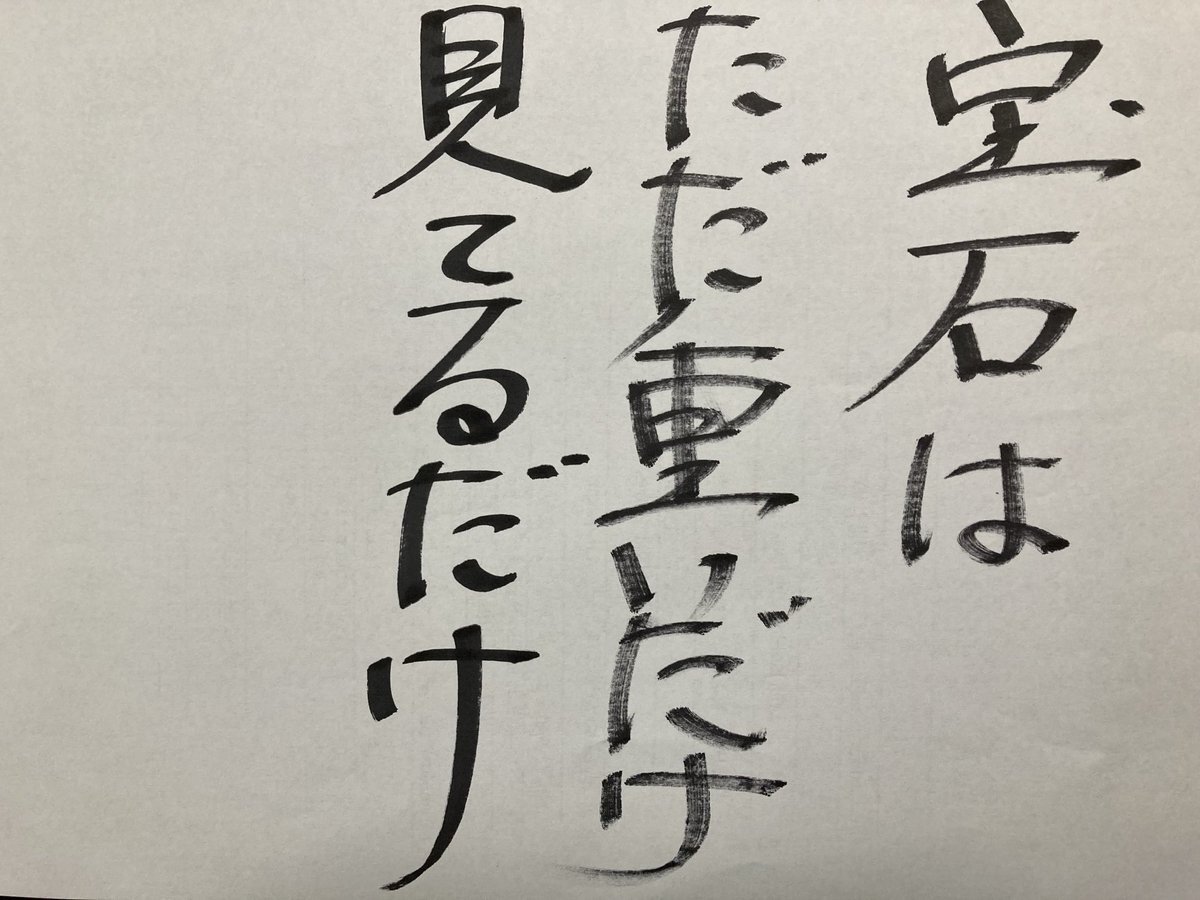 宝石は
ただ重いだけ
見てるだけ